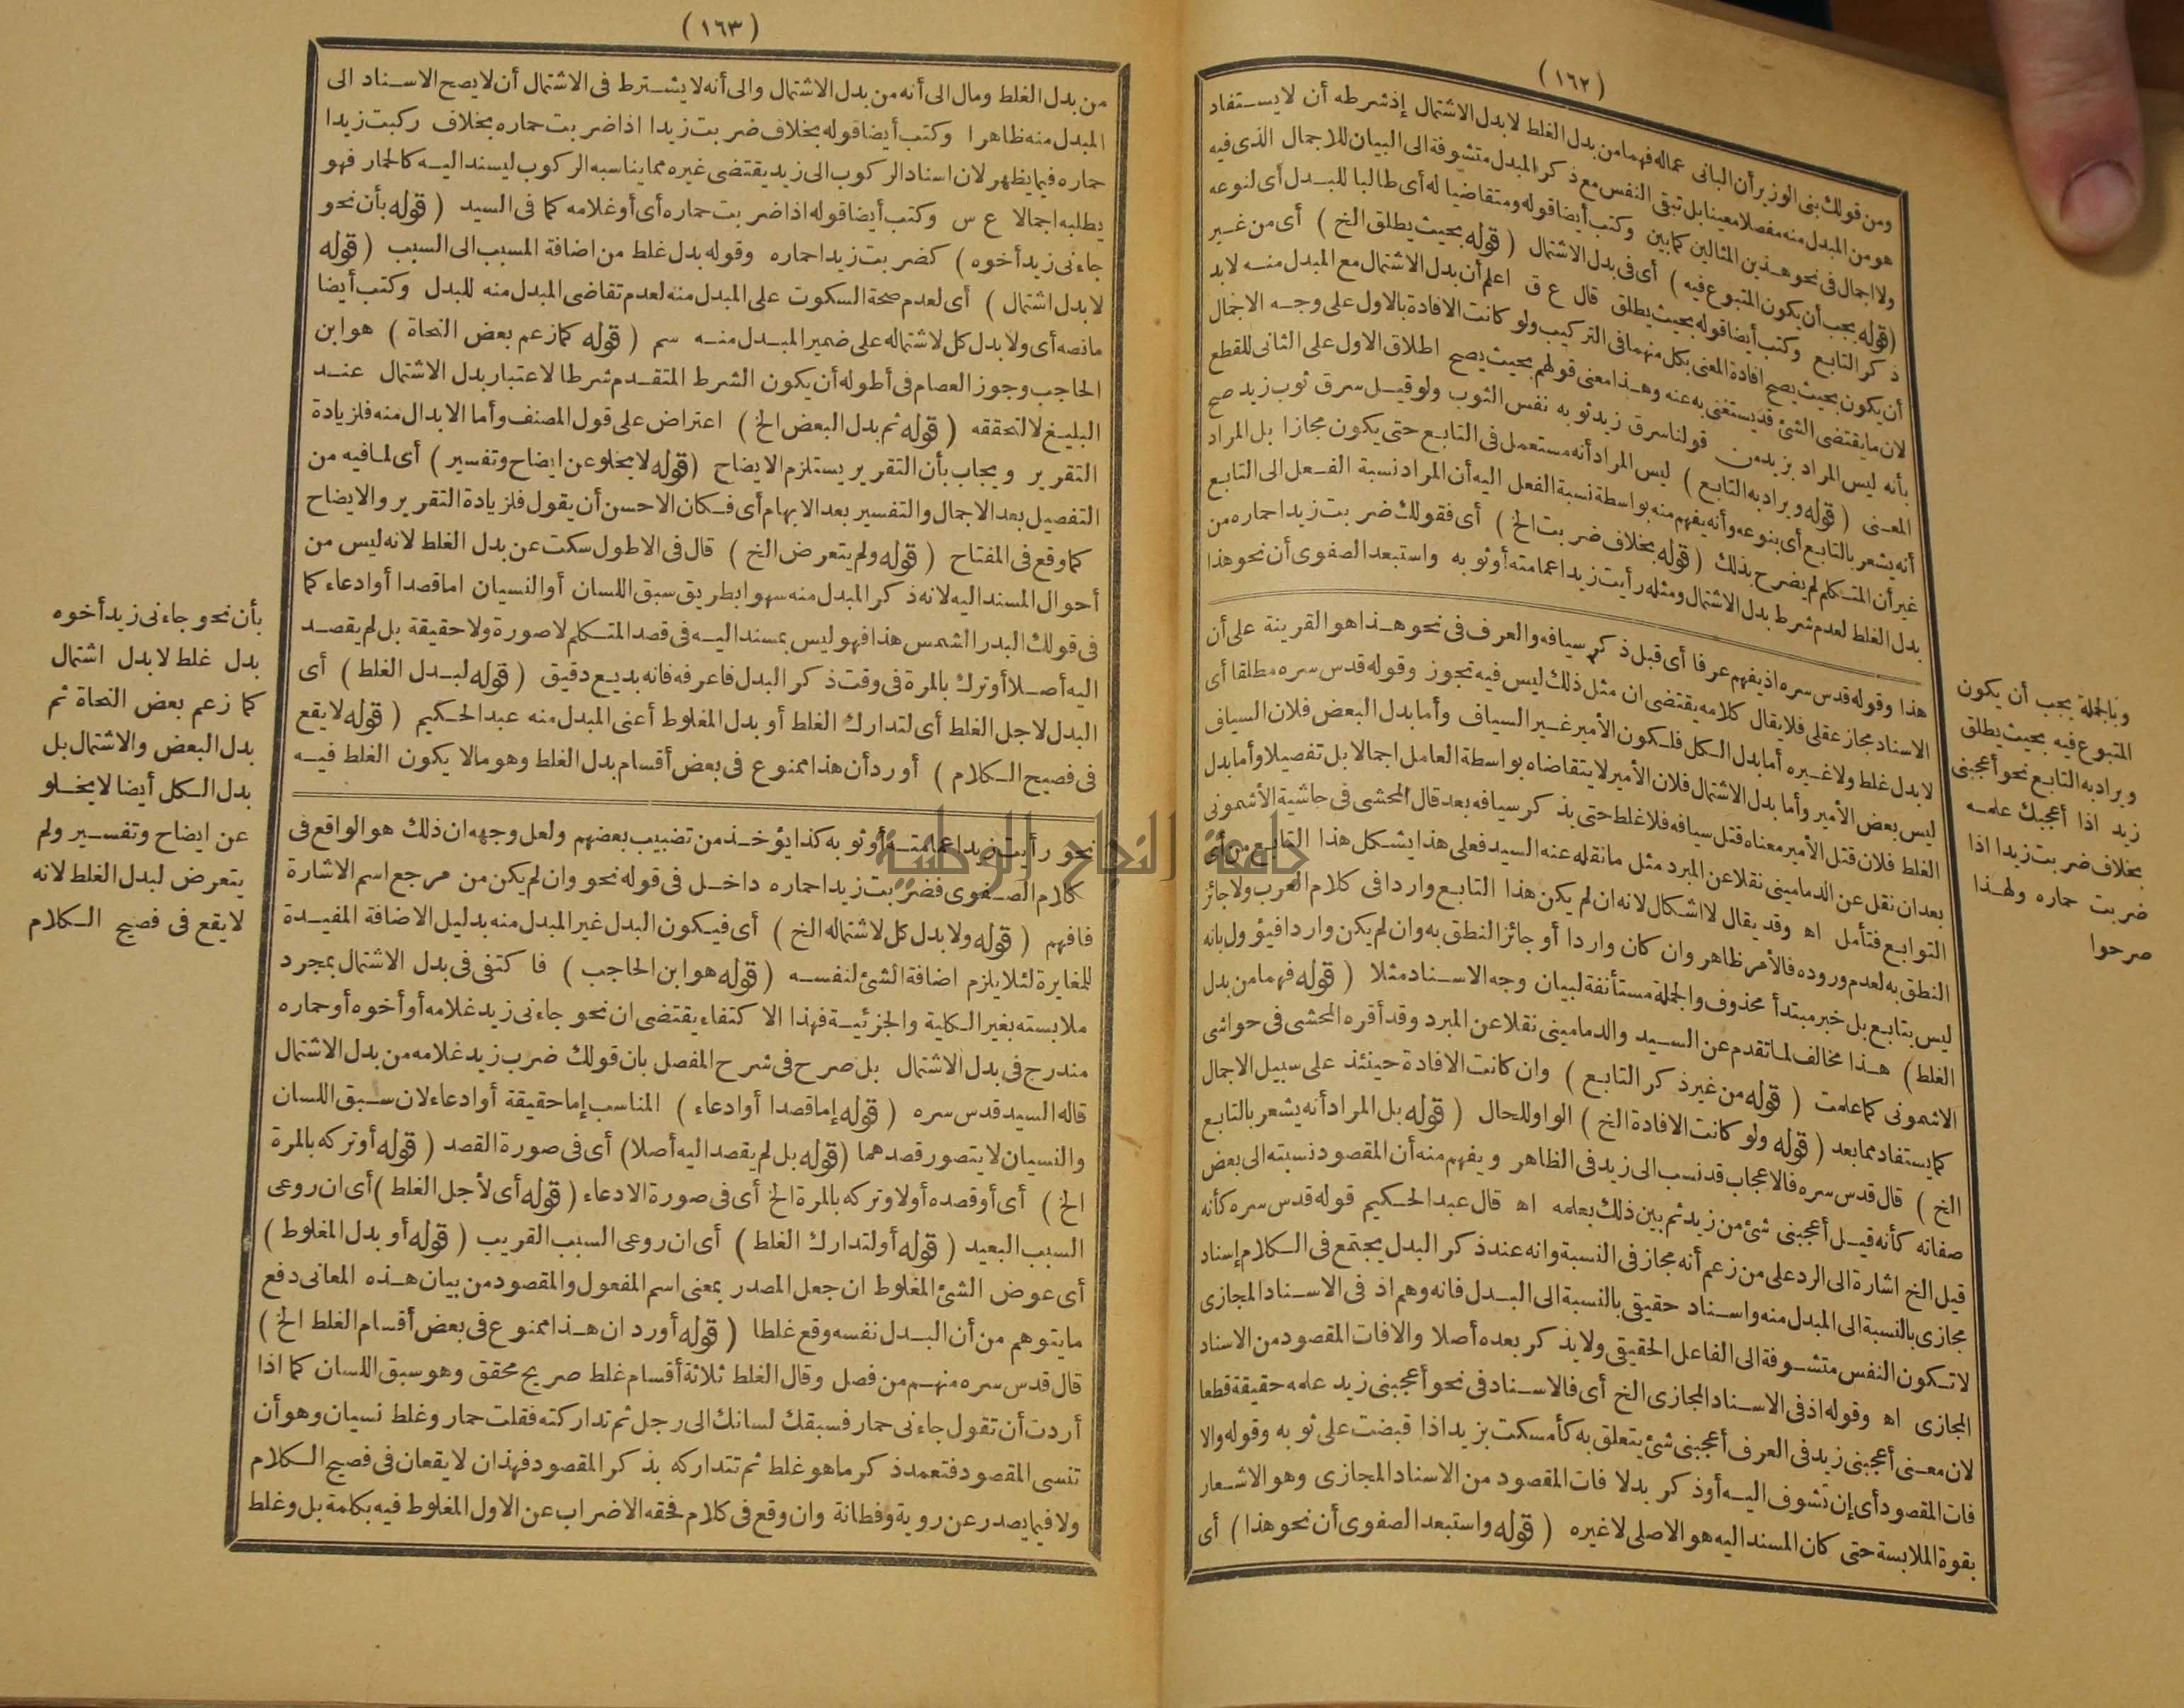 (١٦٢)
ومن قولك بنى الوزير أن البانى عماله فهما من بدل الغلط لا بدل الاشتمال إذ شرطه أن لا يستفاد
هو من المبدل منه مفصلا معينا بل تبقى النفس مع ذكر المبدل متشوفة الى البيان للاجمال الذى فيه
ولا اجمال فى نحو هذين المثالين كما بين وكتب أيضا قوله ومتقاضيا له أى طالبا للبدل أى لنوعه
(قوله يجب أن يكون المتبوع فيه) أى فى بدل الاشتمال (قوله بحيث يطلق الخ) أى من غير
ذكر التابع وكتب أيضا قوله بحيث يطلق قال ع ق اعلم أن بدل الاشتمال مع المبدل منه لابد
أن يكون بحيث يصح افادة المعنى بكل منهما فى التركيب ولو كانت الافادة بالاول على وجه الاجمال
لان ما يقتضى الشئ قد يستغنى به عنه وهذا معنى قولهم بحيث يصح اطلاق الاول على الثانى للقطع
بأنه ليس المراد بزيد من قولنا سرق زيد ثوبه نفس الثوب ولو قيل سرق ثوب زيد صح
المعنى (قوله ويراد به التابع) ليس المراد أنه مستعمل فى التابع حتى يكون مجازا بل المراد
أنه يشعر بالتابع أى بنوعه وأنه يفهم منه بواسطة نسبة الفعل اليه أن المراد نسبة الفعل الى التابع
غير أن المتكلم لم يصرح بذلك (قوله بخلاف ضربت الخ) أى فقولك ضربت زيدا حماره من
بدل الغلط لعدم شرط بدل الاشتمال ومثله رأيت زيدا عمامته أو ثوبه واستبعد الصفوى أن نحو هذا
هذا وقوله قدس سره اذ يفهم عرفا أى قبل ذكر سيافه والعرف فى نحو هذا هو القرينة على أن
الاسناد مجاز عقلى فلا يقال كلامه يقتضى ان مثل ذلك ليس فيه تجوز وقوله قدس سره مطلقا أى
لا بدل غلط ولا غيره أما بدل الكل فلكون الأمير غير السياف وأما بدل البعض فلان السياف
ليس بعض الأمير وأما بدل الاشتمال فلان الأمير لا يتقاضاه بواسطة العامل اجمالا بل تفصيلا وأما بدل
الغلط فلان قتل الأمير معناه قتل سيافه فلا غلط حتى يذكر سيافه بعد قال المحشى فى حاشية الأشمونى
بعد ان نقل عن الدمامينى نقلا عن المبرد مثل ما نقله عنه السيد فعلى هذا يشكل هذا التابع من أى
التوابع فتأمل اه وقد يقال لا اشكال لانه ان لم يكن هذا التابع واردا فى كلام العرب ولا جائز
النطق به لعدم وروده فالأمر ظاهر وان كان واردا أو جائز النطق به وان لم يكن واردا فيؤول بانه
ليس بتابع بل خبر مبتدأ محذوف والجملة مستأنفة لبيان وجه الاسناد مثلا (قوله فهما من بدل
الغلط) هذا مخالف لما تقدم عن السيد والدمامينى نقلا عن المبرد وقد أقره المحشى فى حواشى
الاشمونى كما علمت (قوله من غير ذكر التابع) وان كانت الافادة حينئذ على سبيل الاجمال
كما يستفاد مما بعد (قوله ولو كانت الافادة الخ) الواو للحال (قوله بل المراد أنه يشعر بالتابع
الخ) قال قدس سره فالاعجاب قد نسب الى زيد فى الظاهر ويفهم منه أن المقصود نسبته الى بعض
صفاته كأنه قيل أعجبنى شئ من زيد ثم بين ذلك بعلمه اه قال عبد الحكيم قوله قدس سره كأنه
قيل الخ اشارة الى الرد على من زعم أنه مجاز فى النسبة وانه عند ذكر البدل يجتمع فى الكلام إسناد
مجازى بالنسبة الى المبدل منه واسناد حقيقى بالنسبة الى البدل فانه وهم اذ فى الاسناد المجازى
لا تكون النفس متشوفة الى الفاعل الحقيقى ولا يذكر بعده أصلا والا فات المقصود من الاسناد
المجازى اه وقوله اذ فى الاسناد المجازى الخ أى فالاسناد فى نحو أعجبنى زيد علمه حقيقة قطعا
لان معنى أعجبنى زيد فى العرف أعجبنى شئ يتعلق به كأمسكت بزيد اذا قبضت على ثوبه وقوله والا
فات المقصود أى إن تشوف اليه أو ذكر بدلا فات المقصود من الاسناد المجازى وهو الاشعار
بقوة الملابسة حتى كان المسند اليه هو الاصلى لا غيره (قوله واستبعد الصفوى أن نحو هذا) أى
وبالجملة يجب أن يكون
المتبوع فيه بحيث يطلق
ويراد به التابع نحو أعجبنى
زيد اذا أعجبك علمه
بخلاف ضربت زيدا اذا
ضربت حماره ولهذا
صرحوا
(١٦٣)
من بدل الغلط ومال الى أنه من بدل الاشتمال والى أنه لا يشترط فى الاشتمال أن لا يصح الاسناد الى
المبدل منه ظاهرا وكتب أيضا قوله بخلاف ضربت زيدا اذا ضربت حماره بخلاف ركبت زيدا
حماره فيما يظهر لان اسناد الركوب الى زيد يقتضى غيره مما يناسبه الركوب ليسند اليه كالحمار فهو
يطلبه اجمالا ع س وكتب أيضا قوله اذا ضربت حماره أى أو غلامه كما فى السيد (قوله بأن نحو
جاءنى زيد أخوه) كضربت زيدا حماره وقوله بدل غلط من اضافة المسبب الى السبب (قوله
لا بدل اشتمال) أى لعدم صحة السكوت على المبدل منه لعدم تقاضى المبدل منه للبدل وكتب أيضا
ما نصه أى ولا بدل كل لاشتماله على ضمير المبدل منه سم (قوله كما زعم بعض النحاة) هو ابن
الحاجب وجوز العصام فى أطوله أن يكون الشرط المتقدم شرطا لاعتبار بدل الاشتمال عند
البليغ لا لتحققه (قوله ثم بدل البعض الخ) اعتراض على قول المصنف وأما الابدال منه فلزيادة
التقرير ويجاب بأن التقرير يستلزم الايضاح (قوله لا يخلو عن ايضاح وتفسير) أى لما فيه من
التفصيل بعد الاجمال والتفسير بعد الابهام أى فكان الاحسن أن يقول فلزيادة التقرير والايضاح
كما وقع فى المفتاح (قوله ولم يتعرض الخ) قال فى الاطول سكت عن بدل الغلط لانه ليس من
أحوال المسند اليه لانه ذكر المبدل منه سهوا بطريق سبق اللسان أو النسيان اما قصدا أو ادعاء كما
فى قولك البدر الشمس هذا فهو ليس بمسند اليه فى قصد المتكلم لا صورة ولا حقيقة بل لم يقصد
اليه أصلا أو ترك بالمرة فى وقت ذكر البدل فاعرفه فانه بديع دقيق (قوله لبدل الغلط) أى
البدل لاجل الغلط أى لتدارك الغلط أو بدل المغلوط أعنى المبدل منه عبد الحكيم (قوله لا يقع
فى فصيح الكلام) أورد أن هذا ممنوع فى بعض أقسام بدل الغلط وهو مالا يكون الغلط فيه
نحو رأيت زيدا عمامته أو ثوبه كذا يؤخذ من تضبيب بعضهم ولعل وجهه ان ذلك هو الواقع فى
كلام الصفوى فضربت زيدا حماره داخل فى قوله نحو وان لم يكن من مرجع اسم الاشارة
فافهم (قوله ولا بدل كل لاشتماله الخ) أى فيكون البدل غير المبدل منه بدليل الاضافة المفيدة
للمغايرة لئلا يلزم اضافة الشئ لنفسه (قوله هو ابن الحاجب) فاكتفى فى بدل الاشتمال بمجرد
ملابسته بغير الكلية والجزئية فهذا الاكتفاء يقتضى ان نحو جاءنى زيد غلامه أو أخوه أو حماره
مندرج فى بدل الاشتمال بل صرح فى شرح المفصل بان قولك ضرب زيد غلامه من بدل الاشتمال
قاله السيد قدس سره (قوله إما قصدا أو ادعاء) المناسب إما حقيقة أو ادعاء لان سبق اللسان
والنسيان لا يتصور قصدهما (قوله بل لم يقصد اليه أصلا) أى فى صورة القصد (قوله أو تركه بالمرة
الخ) أى أو قصده أولا وتركه بالمرة الخ أى فى صورة الادعاء (قوله أى لأجل الغلط) أى ان روعى
السبب البعيد (قوله أو لتدارك الغلط) أى ان روعى السبب القريب (قوله أو بدل المغلوط)
أى عوض الشئ المغلوط ان جعل المصدر بمعنى اسم المفعول والمقصود من بيان هذه المعانى دفع
ما يتوهم من أن البدل نفسه وقع غلطا (قوله أورد ان هذا ممنوع فى بعض أقسام الغلط الخ)
قال قدس سره منهم من فصل وقال الغلط ثلاثة أقسام غلط صريح محقق وهو سبق اللسان كما اذا
أردت أن تقول جاءنى حمار فسبقك لسانك الى رجل ثم تداركته فقلت حمار وغلط نسيان وهو أن
تنسى المقصود فتعمد ذكر ما هو غلط ثم تتداركه بذكر المقصود فهذان لا يقعان فى فصيح الكلام
ولا فيما يصدر عن روية وفطانة وان وقع فى كلام فحقه الاضراب عن الاول المغلوط فيه بكلمة بل وغلط
بأن نحو جاءنى زيد أخوه
بدل غلط لا بدل اشتمال
كما زعم بعض النحاة ثم
بدل البعض والاشتمال بل
بدل الكل أيضا لا يخلو
عن ايضاح وتفسير ولم
يتعرض لبدل الغلط لانه
لا يقع فى فصيح الكلام
جامعة النجاح الوطنية